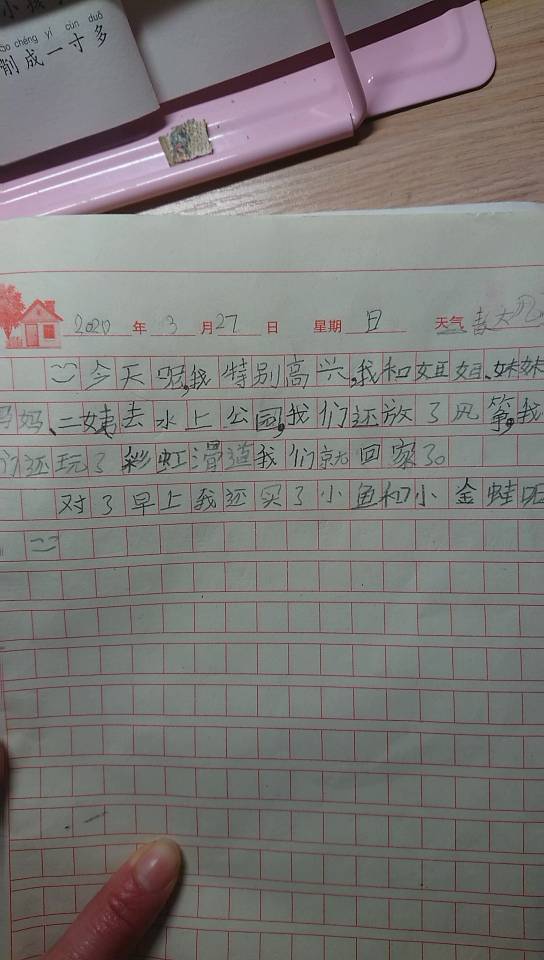 小我
sāo chéng yí cùn duō
削成一寸多
2020 年 3 月 27 日 星期 日 天气 大风
今天呢,我特别高兴,我和姐姐、妹妹
妈妈、二姨去水上公园,我们还放了风筝,我
们还玩了彩虹滑道我们就回家了。
对了早上我还买了小鱼和小金蛙呢